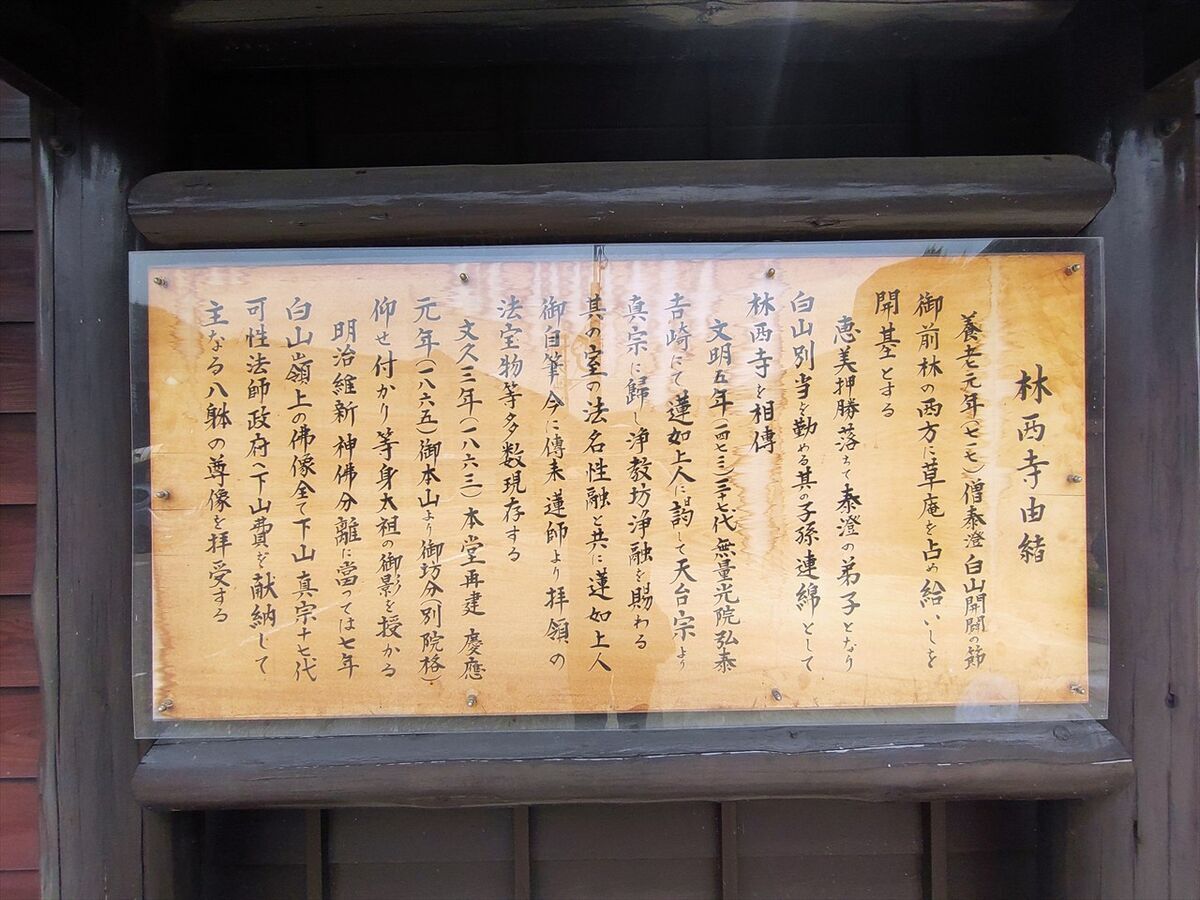 林西寺由緒
養老元年(七一七)僧泰澄白山開闢の節
御前林の西方に草庵を占め給いしを
開基とする
恵美押勝落ちて泰澄の弟子となり
白山別当を勤める其の子孫連綿として
林西寺を相傳
文明五年(一四七三)二十七代無量光院弘泰
吉崎にて蓮如上人に詣して天台宗より
真宗に歸し浄教坊浄融を賜わる
其の室の法名性融と共に蓮如上人
御自筆今に傳来蓮師より拝領の
法宝物等多数現存する
文久三年(一八六三)本堂再建慶應
元年(一八六五)御本山より御坊分(別院格)
仰せ付かり等身太祖の御影を授かる
明治維新神佛分離に當っては七年
白山嶺上の佛像全て下山真宗十七代
可性法師政府へ下山費を献納して
主なる八躰の尊像を拝受する